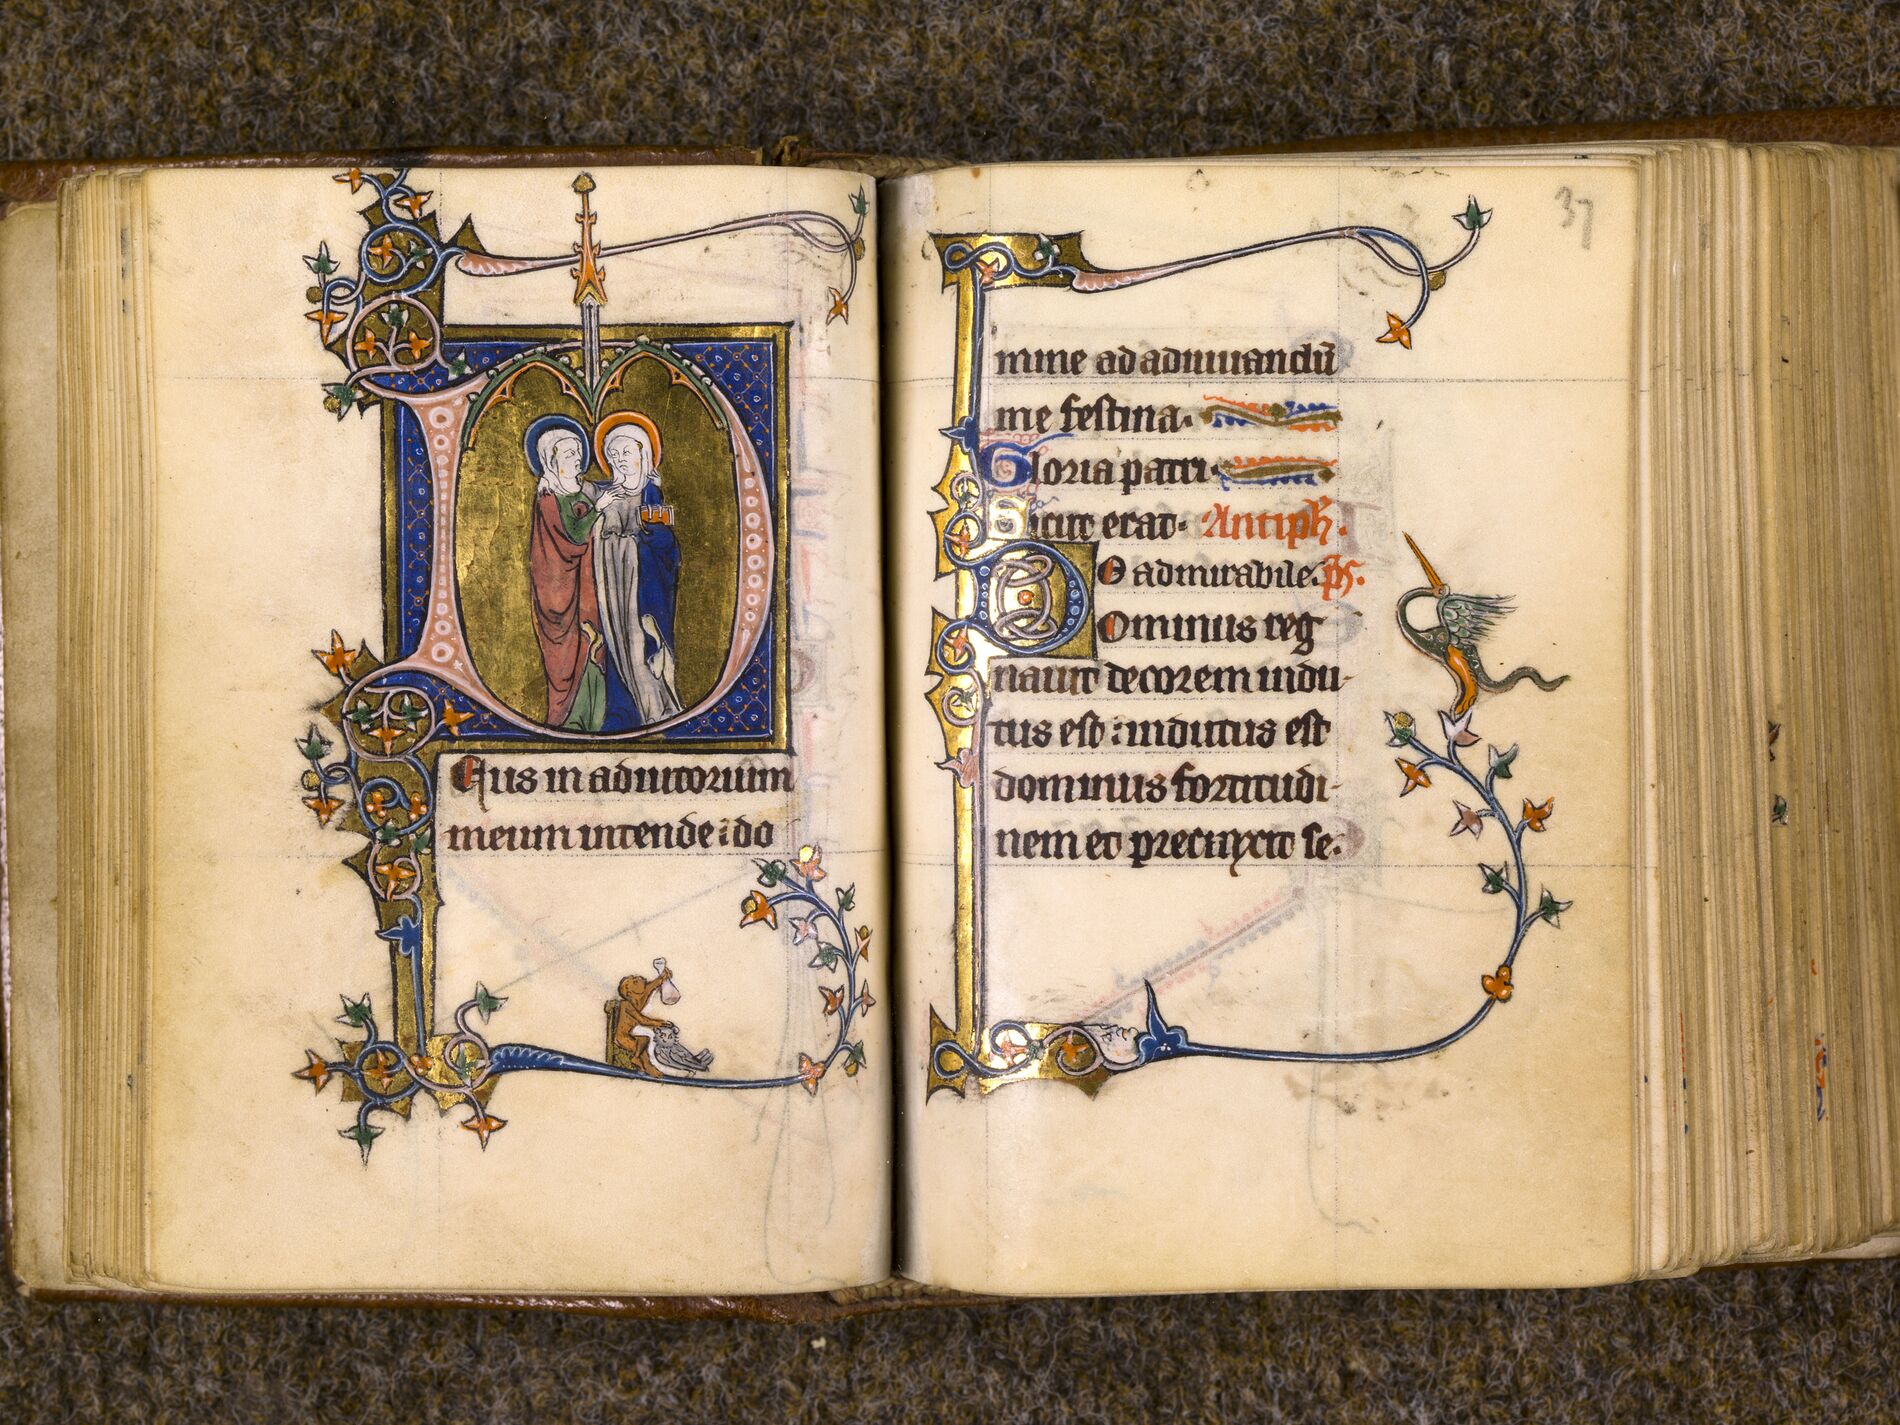 Deus in adiutorium
meum intende : do
37
mine ad adiuuandū
me festina.
Gloria patri.
Sicut erat. Antiph̄.
O admirabile. ps.
Dominus reg
nauit decorem indu-
tus est : indutus est
dominus fortitudi-
nem et precinxit se.